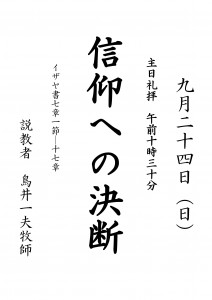 九月二十四日（日）
主日礼拝　午前十時三十分
信仰への決断
イザヤ書七章一節－十七章
説教者　鳥井一夫牧師